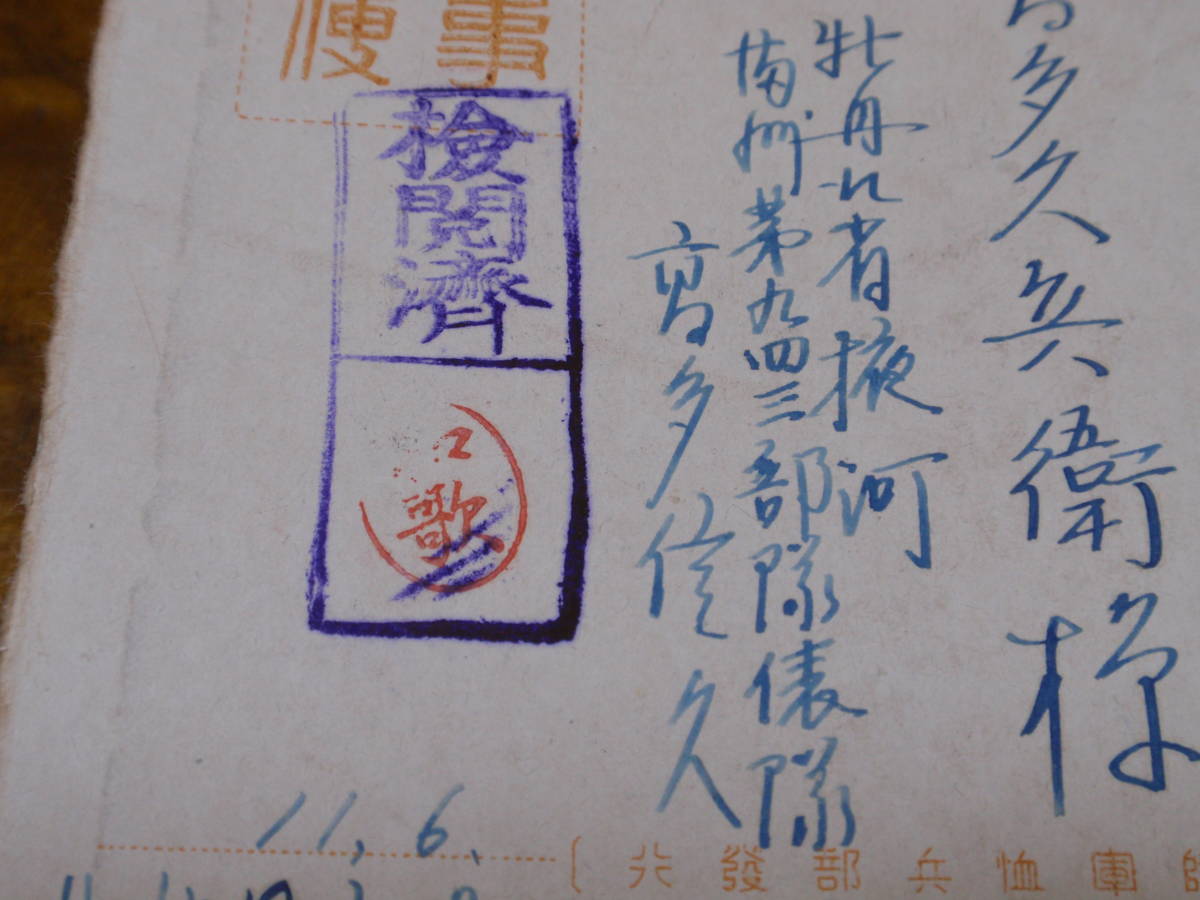 多久兵衛様
牡丹江省掖河
満州第九四三部隊俵隊
喜多信久
事
便
検閲済
歌
11,6,
行發部兵恤軍